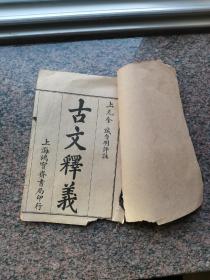 上元余 誠重訂評註
古文釋義
上海鴻寶齋書局印行